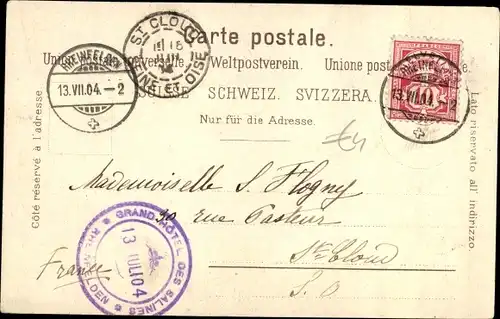 Carte postale.
Union postale universelle. Weltpostverein. Unione postale
SUISSE. SCHWEIZ. SVIZZERA.
Nur für die Adresse.
Côté réservé à l'adresse.
Lato riservato all' indirizzo.
RHEINFELDEN
13.VII.04.–2
ST CLOUD
SEINE ET OISE
RHEINFELDEN
13.VII.04.–2
Mademoiselle S. Flogny
30 rue Pasteur
St Cloud
S. O.
France
GRAND HÔTEL DES SALINES
RHEINFELDEN
13 JUL 04